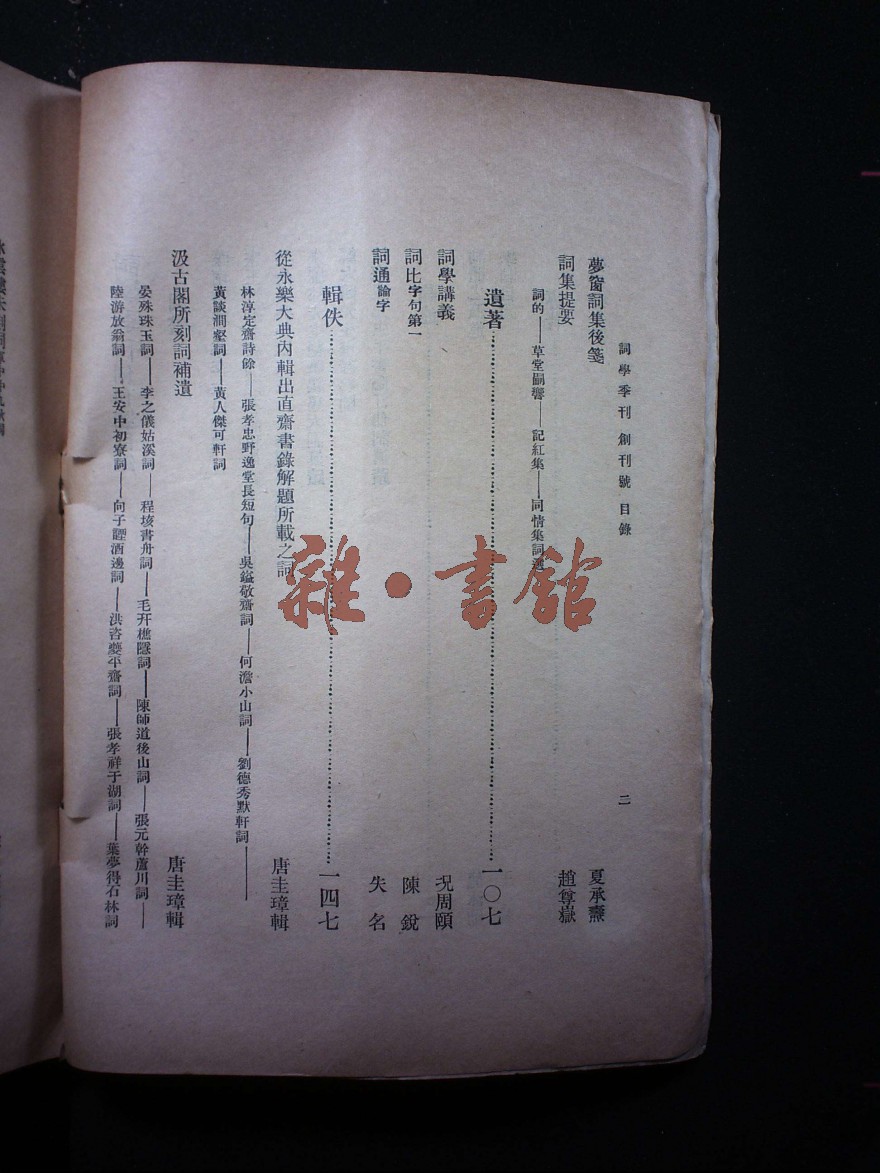 詞學季刊 創刊號 目錄 二
夢窗詞集後箋 夏承燾
詞集提要 趙尊嶽
詞的——草堂嗣響——記紅集——同情集詞選
遺著 一〇七
詞學講義 况周頤
詞比字句第一 陳銳
詞通論字 失名
輯佚 一四七
從永樂大典內輯出直齋書錄解題所載之詞 唐圭璋輯
林淳定齋詩餘——張孝忠野逸堂長短句——吳鎰敬齋詞——何澹小山詞——劉德秀默軒詞——
黃談澗壑詞——黃人傑可軒詞
汲古閣所刻詞補遺 唐圭璋輯
晏殊珠玉詞——李之儀姑溪詞——程垓書舟詞——毛开樵隱詞——陳師道後山詞——張元幹蘆川詞——
陸游放翁詞——王安中初寮詞——向子諲酒邊詞——洪咨夔平齋詞——張孝祥于湖詞——葉夢得石林詞
雜·書館